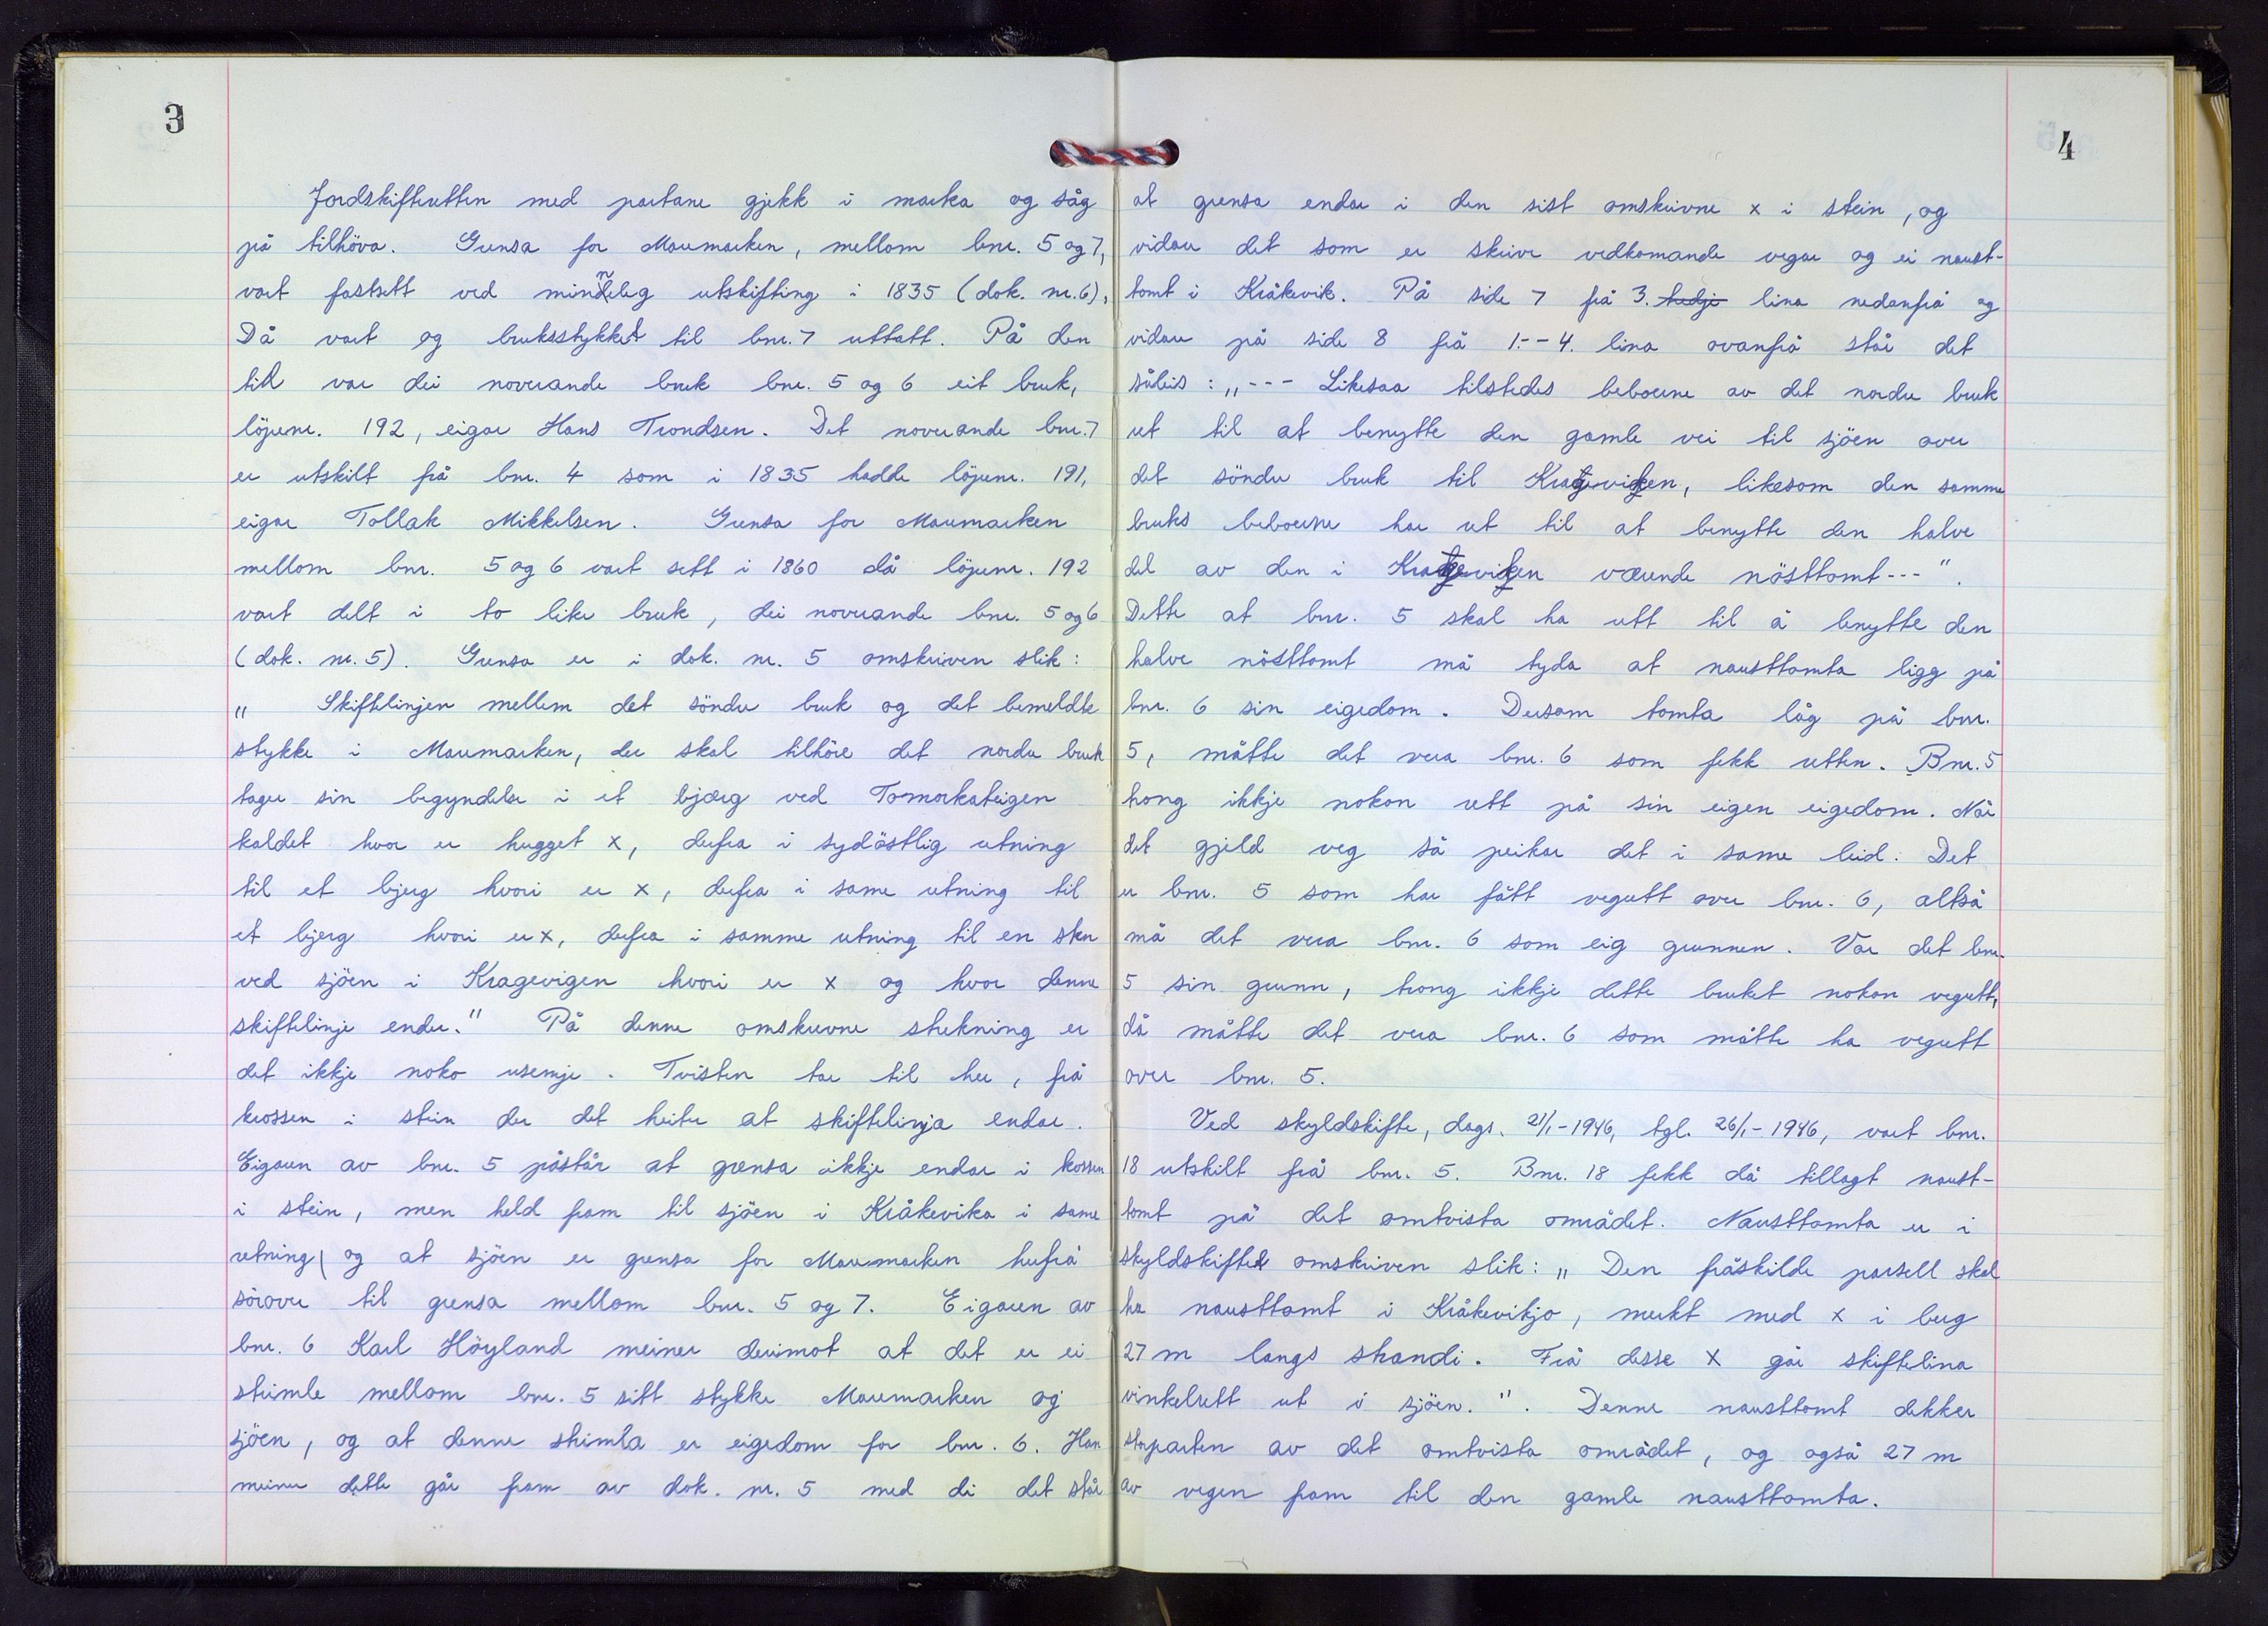 3
Jordskifteretten med partane gjekk i marka og såg
på tilhöva. Grensa for Maremarken, mellom bnr. 5 og 7,
vart fastsett ved minneleg utskifting i 1835 (dok. nr. 6),
Då vart og bruksstykket til bnr. 7 uttatt. På den
tid var dei noverande bruk bnr. 5 og 6 eit bruk,
löpenr. 192, eigar Hans Trondsen. Det noverande bnr. 7
er utskilt frå bnr. 4 som i 1835 hadde löpenr. 191,
eigar Tollak Mikkelsen. Grensa for Maremarken
mellom bnr. 5 og 6 vart sett i 1860 då löpenr. 192
vart delt i to like bruk, dei noverande bnr. 5 og 6
(dok. nr. 5). Grensa er i dok. nr. 5 omskriven slik:
„ Skiftelinjen mellem det söndre bruk og det bemeldte
stykke i Maremarken, der skal tilhöre det nordre bruk
tager sin begyndelse i et bjærg ved Tomarkateigen
kaldet hvor er hugget x, derfra i sydöstlig retning
til et bjerg hvori er x, derfra i same retning til
et bjerg hvori er x, derfra i samme retning til en sten
ved sjöen i Kragevigen hvori er x og hvor denne
skiftelinje ender." På denne omskrevne strekning er
det ikkje noko usemje. Tvisten tar til her, frå
krossen i stein der det heiter at skiftelinja endar.
Eigaren av bnr. 5 påstår at grensa ikkje endar i krossen
i stein, men held fram til sjöen i Kråkevika i same
retning, og at sjöen er grensa for Maremarken herfrå
sörover til grensa mellom bnr. 5 og 7. Eigaren av
bnr. 6 Karl Höyland meiner derimot at det er ei
strimle mellom bnr. 5 sitt stykke Maremarken og
sjöen, og at denne strimla er eigedom for bnr. 6. Han
meiner dette går fram av dok. nr. 5 med di det står
4
at grensa endar i den sist omskrivne x i stein, og
vidare det som er skrive vedkomande vegar og ei naust-
tomt i Kråkevik. På side 7 frå 3. tredje lina nedanfrå og
vidare på side 8 frå 1.--4. lina ovanfrå står det
såleis: „--- Likesaa tilstedes beboerne av det nordre bruk
ret til at benytte den gamle vei til sjöen over
det söndre bruk til Kragevigen, likesom den samme
bruks beboerne har ret til at benytte den halve
del av den i Kragevigen værende nösttomt---".
Dette at bnr. 5 skal ha rett til å benytte den
halve nösttomt må tyda at nausttomta ligg på
bnr. 6 sin eigedom. Dersom tomta låg på bnr.
5, måtte det vera bnr. 6 som fekk retten. Bnr. 5
trong ikkje nokon rett på sin eigen eigedom. Når
det gjeld veg så peikar det i same leid: Det
er bnr. 5 som har fått vegrett over bnr. 6, altså
må det vera bnr. 6 som eig grunnen. Var det bnr.
5 sin grunn, trong ikkje dette bruket nokon vegrett,
då måtte det vera bnr. 6 som måtte ha vegrett
over bnr. 5.
Ved skyldskifte, dags. 21/1-1946, tgl. 26/1-1946, vart bnr.
18 utskilt frå bnr. 5. Bnr. 18 fekk då tillagt naust-
tomt på det omtvista området. Nausttomta er i
skyldskiftet omskriven slik: „ Den fråskilde parsell skal
ha nausttomt i Kråkevikjo, merkt med x i berg
27 m langs strandi. Frå desse x går skiftelina
vinkelrett ut i sjöen.". Denne nausttomt dekker
storparten av det omtvista området, og også 27 m
av vegen fram til den gamle nausttomta.